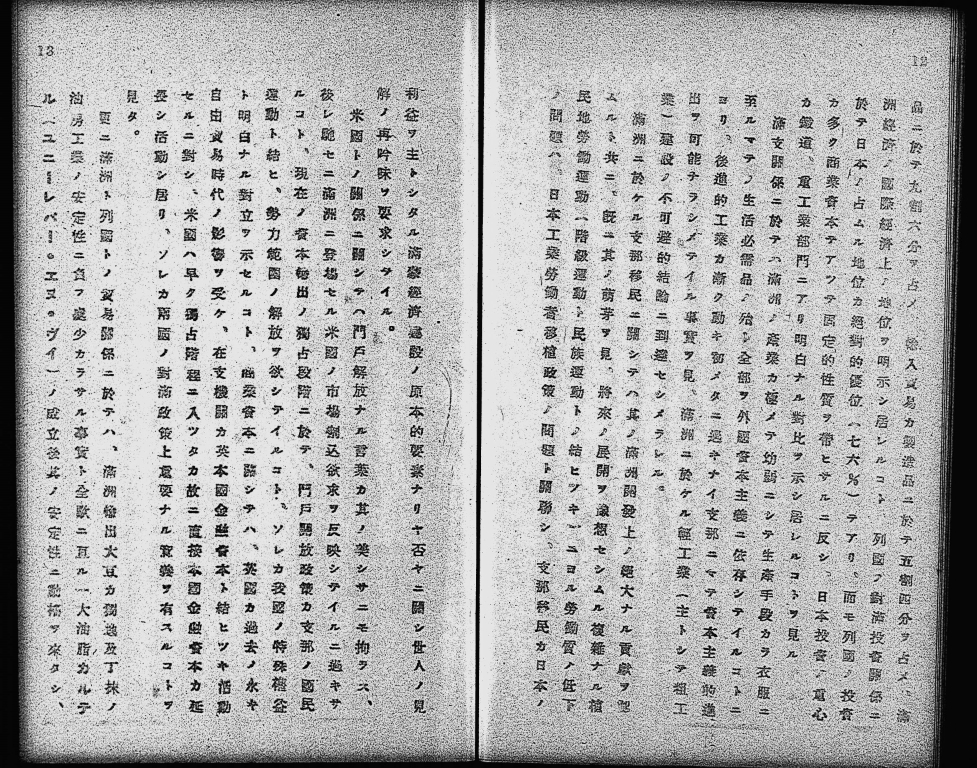 12
品ニ於テ九割六分ヲ占メ、輸入貿易カ製造品ニ於テ五割四分ヲ占メ、滿
洲經濟ノ國際經濟上ノ地位ヲ明示シ居レルコト、列國ノ對滿投資關係ニ
於テ日本ノ占ムル地位カ絕對的優位(七六%)テアリ、而モ列國ノ投資
カ多ク商業資本テアツテ固定的性質ヲ帶ヒサルニ反シ、日本投資ノ重心
カ鐵道、重工業部門ニアリ明白ナル對比ヲ示シ居レルコトヲ見ル
滿支關係ニ於テハ滿洲ノ產業カ極メテ幼弱ニシテ生產手段カラ衣服ニ
至ルマテノ生活必需品ノ殆ト全部ヲ外國資本主義ニ依存シテイルコトニ
ヨリ、後進的工業カ漸ク動キ初メタニ過キナイ支那ニマテ資本主義的進
出ヲ可能ナラシメテイル事實ヲ見、滿洲ニ於ケル輕工業(主トシテ組工
業)建設ノ不可避的結論ニ到達セシメラレル。
滿洲ニ於ケル支那移民ニ關シテハ其ノ滿洲開發上ノ絕大ナル貢獻ヲ
ムルト共ニ、既ニ其ノ萌芽ヲ見、將來ノ展開ヲ豫想セシムル複雜ナル植
民地勞働運動(階級運動ト民族運動トノ結ヒツキ)ニヨル勞働質ノ低下
ノ問題ハ、日本工業勞働者移植政策ノ問題ト關聯シ、支那移民カ日本ノ
13
利益ヲ主トシタル滿蒙經濟建設ノ原本的要素ナリヤ否ヤニ關シ世人ノ見
解ノ再吟味ヲ要求シテイル。
米國トノ關係ニ關シテハ門戶解放ナル言葉カ其ノ美シサニモ拘ラス、
後レ馳セニ滿洲ニ登場セル米國ノ市場割込欲求ヲ反映シテイルニ過キサ
ルコト、現在ノ資本輸出ノ獨占段階ニ於テ、門戶開放政策カ支那ノ國民
運動ト結ヒ、勢力範圍ノ解放ヲ欲シテイルコト、ソレカ我國ノ特殊權益
ト明白ナル對立ヲ示セルコト、商業資本ニ關シテハ、英國カ過去ノ永キ
自由貿易時代ノ影響ヲ受ケ、在支機關カ英本國金融資本ト結ヒツキ活動
セルニ對シ、米國ハ早ク獨占階程ニ入ツタカ故ニ直接本國金融資本カ延
長シ活動シ居リ、ソレカ兩國ノ對滿政策上重要ナル意義ヲ有スルコトヲ
見タ。
更ニ滿洲ト列國トノ貿易關係ニ於テハ、滿洲輸出大豆カ獨逸及丁抹ノ
油房工業ノ安定性ニ負フ處少カラサル事實ト全歐ニ亙ル一大油脂カルテ
ル(ユニーレバー。エヌ。ヴイ)ノ成立後其ノ安定性ニ動搖ヲ來タシ、